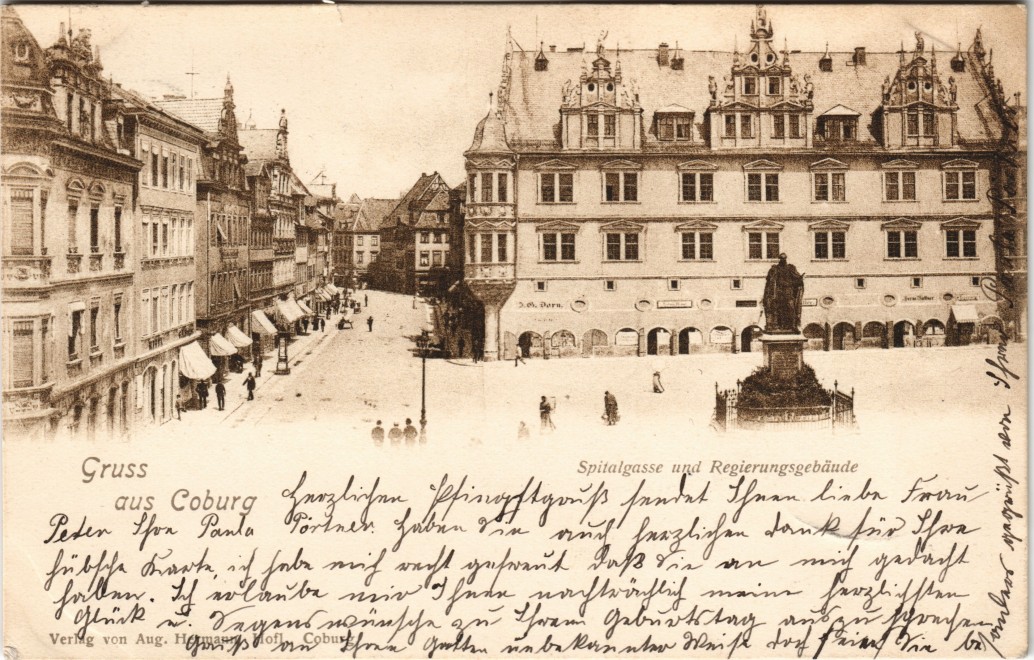 J. G. Dorn.
Spitalgasse und Regierungsgebäude
Gruss
aus Coburg
Herzlichen Pfingstgruß sendet Ihnen liebe Frau
Peter Ihre Paula Pörtner. Haben Sie auch herzlichen Dank für Ihre
hübsche Karte, ich habe mich recht gefreut daß Sie an mich gedacht
haben. Ich erlaube mir Ihnen nachträglich meine herzlichsten
Glück u. Segenswünsche zu Ihrem Geburtstag auszusprechen
Gruß an Ihren Gatten unbekannter Weise doch seien Sie be
sonders gegrüßt von Ihrer
Verlag von Aug. Hermann, Hofl., Coburg.